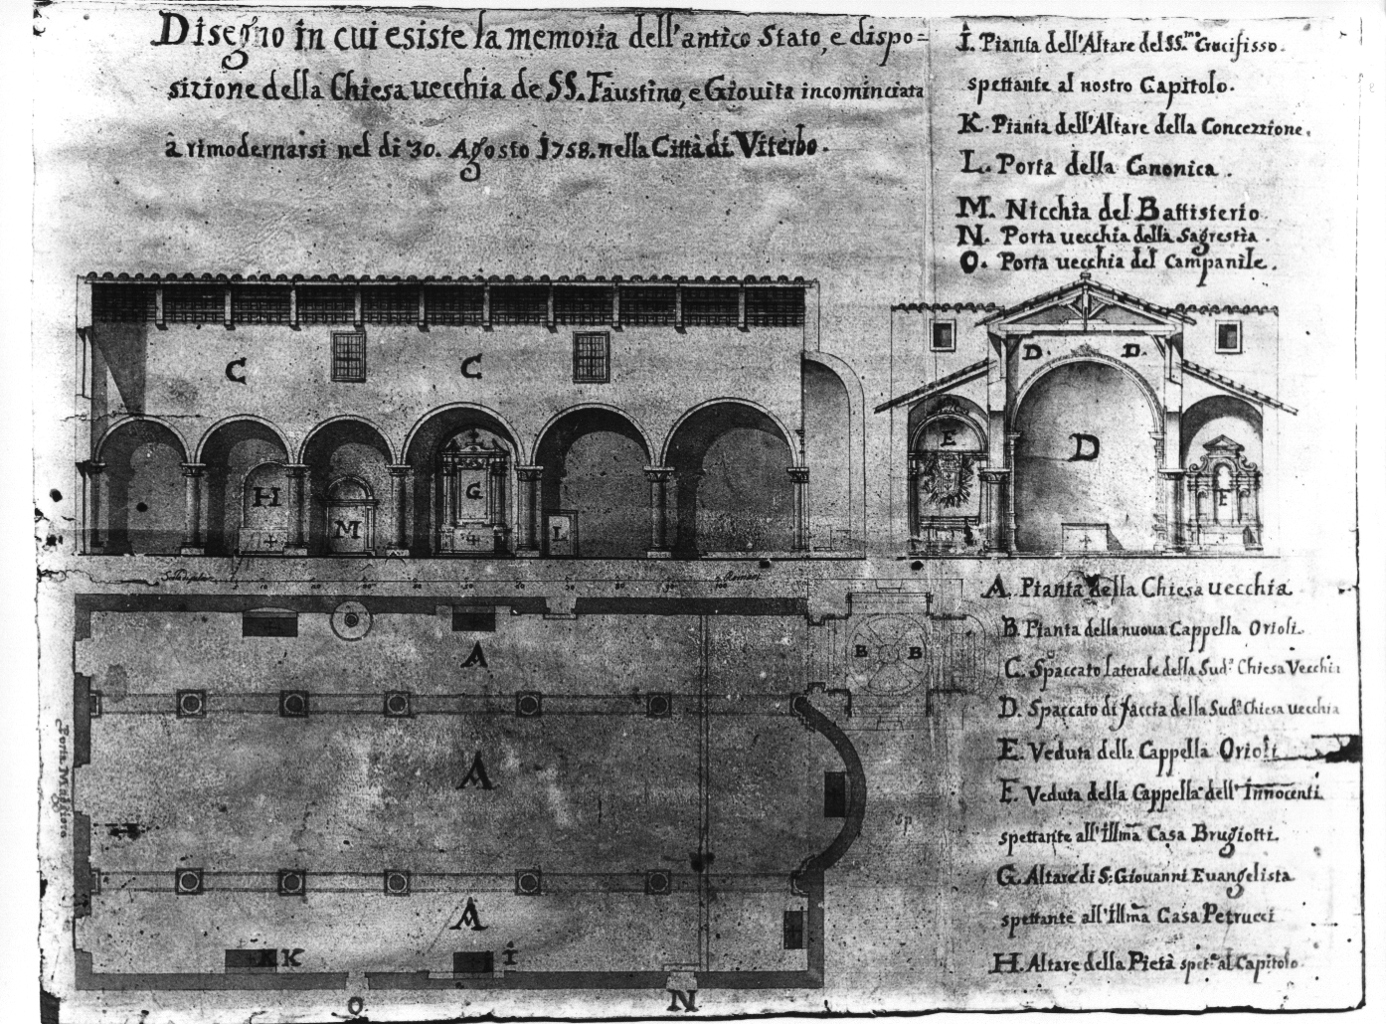 Disegno in cui esiste la memoria dell'antico Stato, e dispo=
sizione della Chiesa uecchia de SS. Faustino, e Giouita incominciata
à rimodernarsi nel di 30. Agosto 1758. nella Città di Viterbo.
I. Pianta dell'Altare del SS.mo Crocifisso.
spettante al nostro Capitolo.
K. Pianta dell'Altare della Concezzione.
L. Porta della Canonica.
M. Nicchia del Battisterio.
N. Porta uecchia della Sagrestia.
O. Porta uecchia del Campanile.
C C
D. D.
D
E
F
H M G L
Romani
A. Pianta della Chiesa uecchia
B. Pianta della nuoua Cappella Orioli.
C. Spaccato laterale della Sud.a Chiesa Vecchia
D. Spaccato di faccia della Sud.a Chiesa uecchia
E. Veduta della Cappella Orioli
F. Veduta della Cappella dell'Innocenti
spettante all'Illma Casa Brugiotti.
G. Altare di S: Giouanni Euangelista
spettante all'Illma Casa Petrucci
H. Altare della Pietà spet.e al Capitolo.
A
B B
A
A
Porta Maggiore
sp
K I
O N